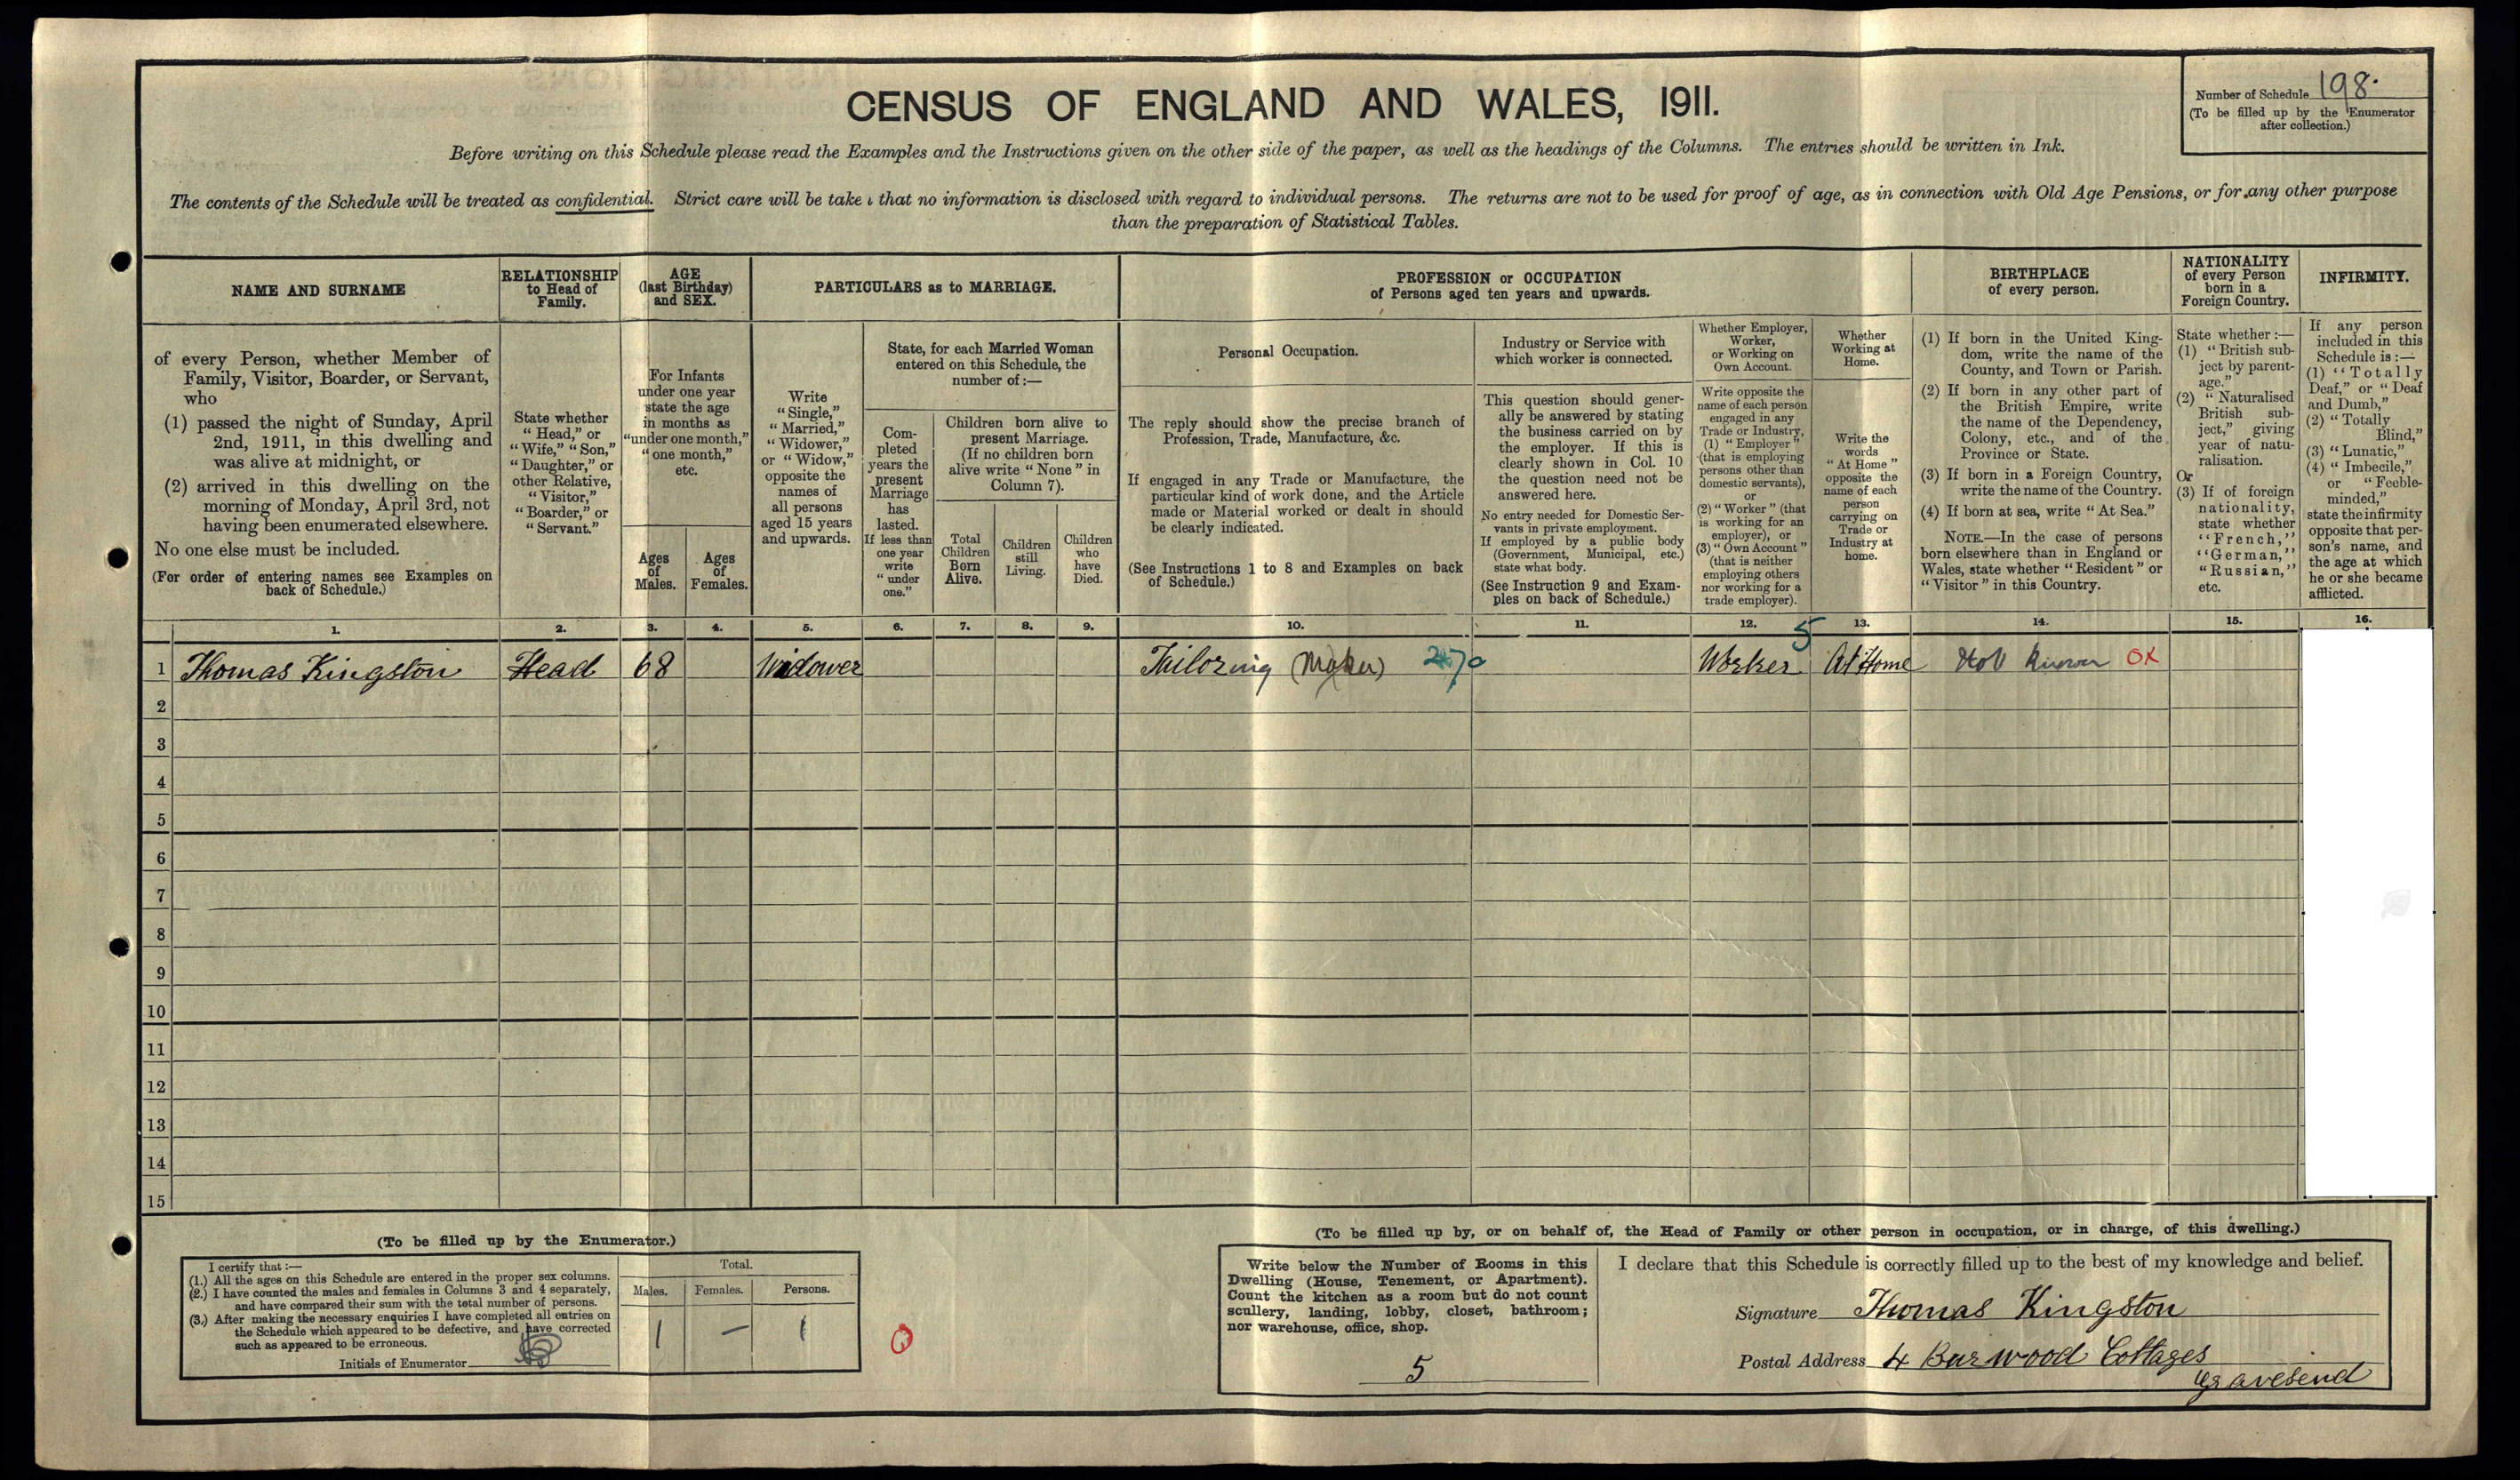 CENSUS OF ENGLAND AND WALES, 1911.
Number of Schedule 198.
(To be filled up by the Enumerator
after collection.)
Before writing on this Schedule please read the Examples and the Instructions given on the other side of the paper, as well as the headings of the Columns. The entries should be written in Ink.
The contents of the Schedule will be treated as confidential. Strict care will be take that no information is disclosed with regard to individual persons. The returns are not to be used for proof of age, as in connection with Old Age Pensions, or for any other purpose
than the preparation of Statistical Tables.
NAME AND SURNAME
of every Person, whether Member of
Family, Visitor, Boarder, or Servant,
who
(1) passed the night of Sunday, April
2nd, 1911, in this dwelling and
was alive at midnight, or
(2) arrived in this dwelling on the
morning of Monday, April 3rd, not
having been enumerated elsewhere.
No one else must be included.
(For order of entering names see Examples on
back of Schedule.)
RELATIONSHIP
to Head of
Family.
State whether
"Head," or
"Wife," "Son,"
"Daughter," or
other Relative,
"Visitor,"
"Boarder," or
"Servant."
AGE
(last Birthday)
and SEX.
For Infants
under one year
state the age
in months as
"under one month,"
"one month,"
etc.
Ages
of
Males.
Ages
of
Females.
PARTICULARS as to MARRIAGE.
Write
"Single,"
"Married,"
"Widower,"
or "Widow,"
opposite the
names of
all persons
aged 15 years
and upwards.
State, for each Married Woman
entered on this Schedule, the
number of:—
Com-
pleted
years the
present
Marriage
has
lasted.
If less than
one year
write
"under
one."
Children born alive to
present Marriage.
(If no children born
alive write "None" in
Column 7).
Total
Children
Born
Alive.
Children
still
Living.
Children
who
have
Died.
PROFESSION or OCCUPATION
of Persons aged ten years and upwards.
Personal Occupation.
The reply should show the precise branch of
Profession, Trade, Manufacture, &c.
If engaged in any Trade or Manufacture, the
particular kind of work done, and the Article
made or Material worked or dealt in should
be clearly indicated.
(See Instructions 1 to 8 and Examples on back
of Schedule.)
Industry or Service with
which worker is connected.
This question should gener-
ally be answered by stating
the business carried on by
the employer. If this is
clearly shown in Col. 10
the question need not be
answered here.
No entry needed for Domestic Ser-
vants in private employment.
If employed by a public body
(Government, Municipal, etc.)
state what body.
(See Instruction 9 and Exam-
ples on back of Schedule.)
Whether Employer,
Worker,
or Working on
Own Account.
Write opposite the
name of each person
engaged in any
Trade or Industry,
(1) "Employer"
(that is employing
persons other than
domestic servants),
or
(2) "Worker" (that
is working for an
employer), or
(3) "Own Account"
(that is neither
employing others
nor working for a
trade employer).
Whether
Working at
Home.
Write the
words
"At Home"
opposite the
name of each
person
carrying on
Trade or
Industry at
home.
BIRTHPLACE
of every person.
(1) If born in the United King-
dom, write the name of the
County, and Town or Parish.
(2) If born in any other part of
the British Empire, write
the name of the Dependency,
Colony, etc., and of the
Province or State.
(3) If born in a Foreign Country,
write the name of the Country.
(4) If born at sea, write "At Sea."
NOTE.—In the case of persons
born elsewhere than in England or
Wales, state whether "Resident" or
"Visitor" in this Country.
NATIONALITY
of every Person
born in a
Foreign Country.
State whether:—
(1) "British sub-
ject by parent-
age."
(2) "Naturalised
British sub-
ject," giving
year of natu-
ralisation.
Or
(3) If of foreign
nationality,
state whether
"French,"
"German,"
"Russian,"
etc.
INFIRMITY.
If any person
included in this
Schedule is:—
(1) "Totally
Deaf," or "Deaf
and Dumb,"
(2) "Totally
Blind,"
(3) "Lunatic,"
(4) "Imbecile,"
or "Feeble-
minded,"
state the infirmity
opposite that per-
son's name, and
the age at which
he or she became
afflicted.
1. 2. 3. 4. 5. 6. 7. 8. 9. 10. 11. 12. 13. 14. 15. 16.
5
1 Thomas Kingston Head 68 Widower Tailoring (Maker) 270 Worker At Home Not known OX
2
3
4
5
6
7
8
9
10
11
12
13
14
15
(To be filled up by the Enumerator.)
I certify that:—
(1.) All the ages on this Schedule are entered in the proper sex columns.
(2.) I have counted the males and females in Columns 3 and 4 separately,
and have compared their sum with the total number of persons.
(3.) After making the necessary enquiries I have completed all entries on
the Schedule which appeared to be defective, and have corrected
such as appeared to be erroneous.
Initials of Enumerator
Total.
Males. Females. Persons.
1 — 1
0
(To be filled up by, or on behalf of, the Head of Family or other person in occupation, or in charge, of this dwelling.)
Write below the Number of Rooms in this
Dwelling (House, Tenement, or Apartment).
Count the kitchen as a room but do not count
scullery, landing, lobby, closet, bathroom;
nor warehouse, office, shop.
5
I declare that this Schedule is correctly filled up to the best of my knowledge and belief.
Signature Thomas Kingston
Postal Address 4 Burwood Cottages
Gravesend